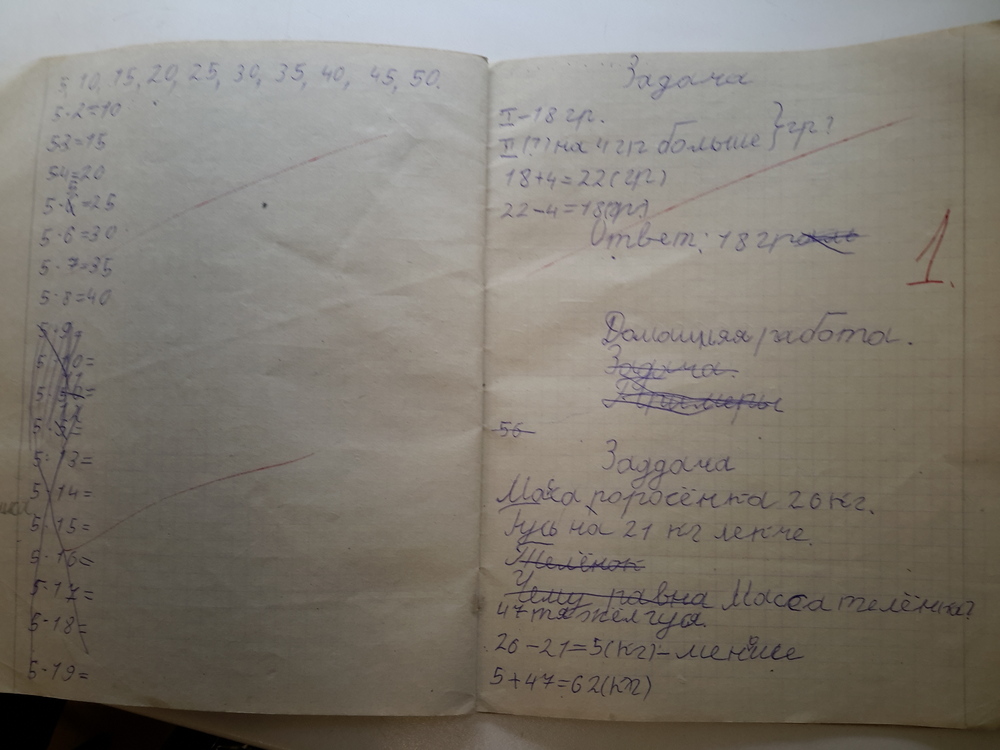 5, 10, 15, 20, 25, 30, 35, 40, 45, 50.
5·2=10
5·3=15
5·4=20
5·5=25
5·6=30
5·7=35
5·8=40
5·9=
5·10=
5·11=
5·12=
5·13=
5·14=
5·15=
5·16=
5·17=
5·18=
5·19=
Задача
I-18 гр.
II (?) на 4 гр больше } гр?
18+4=22(гр)
22-4=18(гр)
Ответ: 18 гр
1.
Домашняя работа.
Задача.
Примеры
56
Заддача
Маса поросёнка 26 кг.
Гусь на 21 кг легче.
Телёнок
Чему равна Масса телёнка?
47 тяжел гуся.
26-21=5(кг)-меньше
5+47=62(кг)